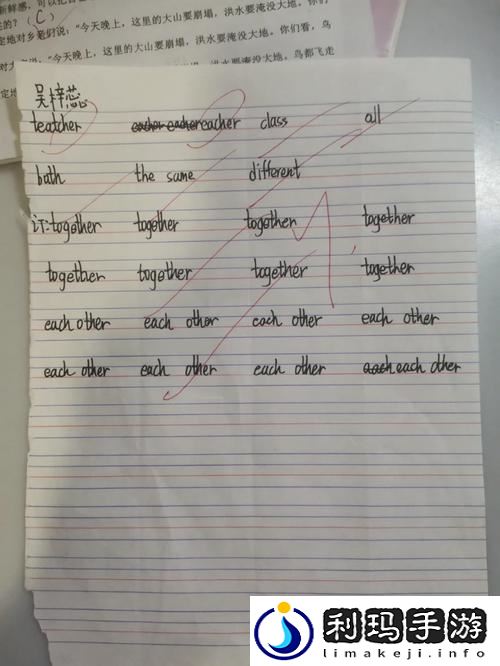 新鲜感，可以把
的？（C）
定地对乡亲们说：“今天晚上，这里的大山要崩塌，洪水要淹没大地。你们
说：“今天晚上，这里的大山要崩塌，洪水要淹没大地。你们看，鸟
洪水要淹没大地。鸟都飞走
吴梓蕊
teatcher each​er eacher eacher class all
bath the same different
订:together together together together
together together together together
each other each other each other each other
each other each other each other each each other
利玛手游
limakeji.info